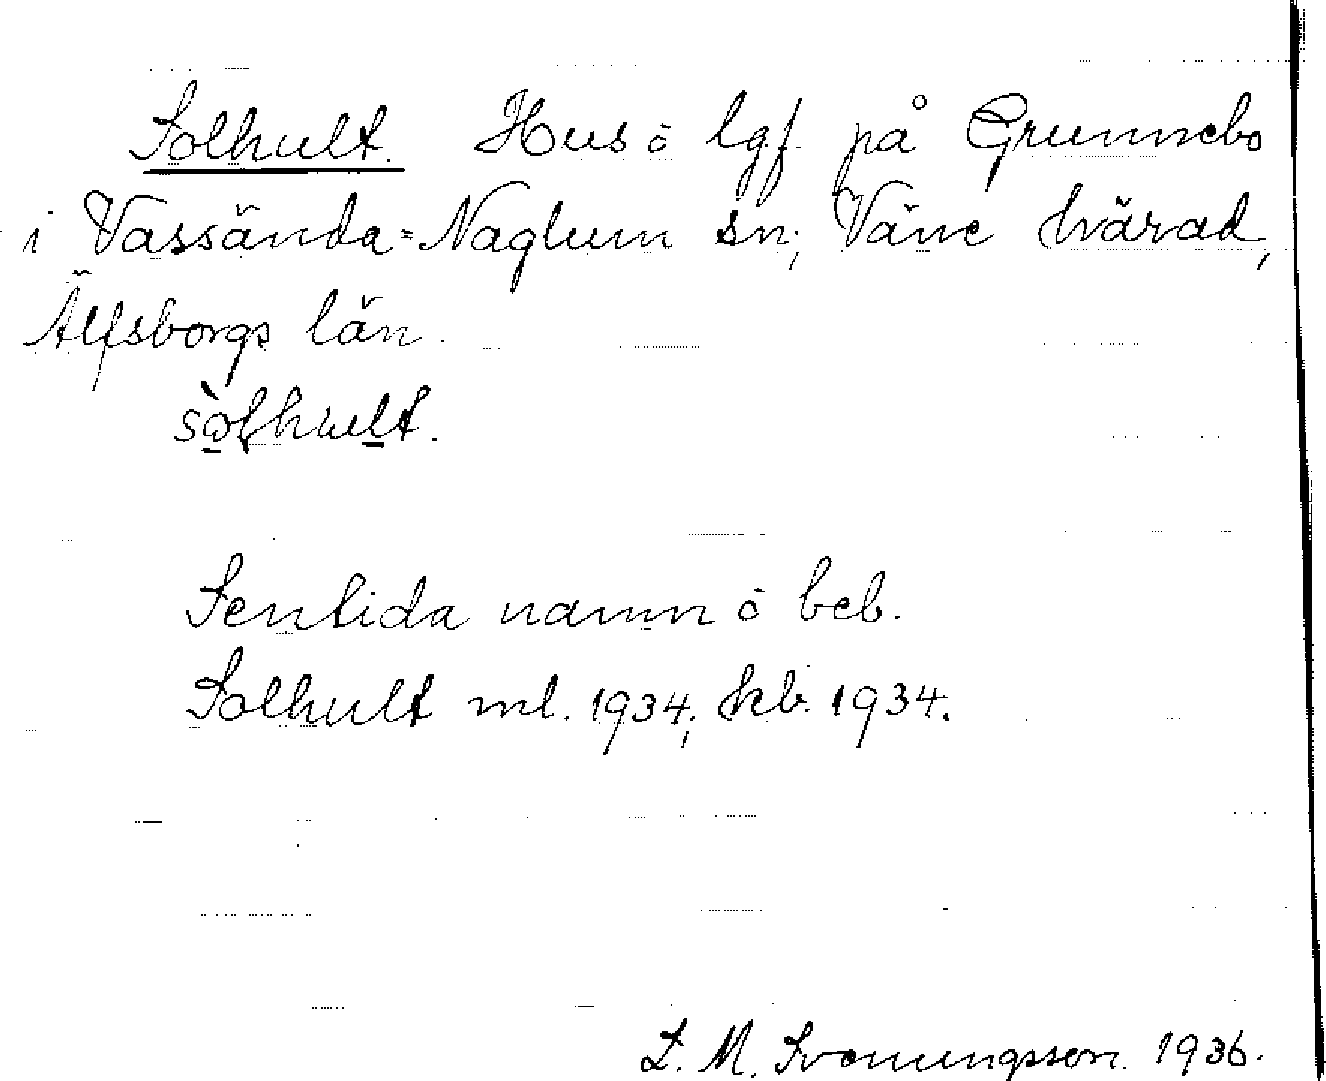 Solhult. Hus o lgf. på Grunnebo
i Vassända-Naglum sn, Väne härad,
Älfsborgs län.
sòlhult.
Sentida namn o beb.
Solhult ml. 1934, kb. 1934.
L. M. Svenungsson. 1936.